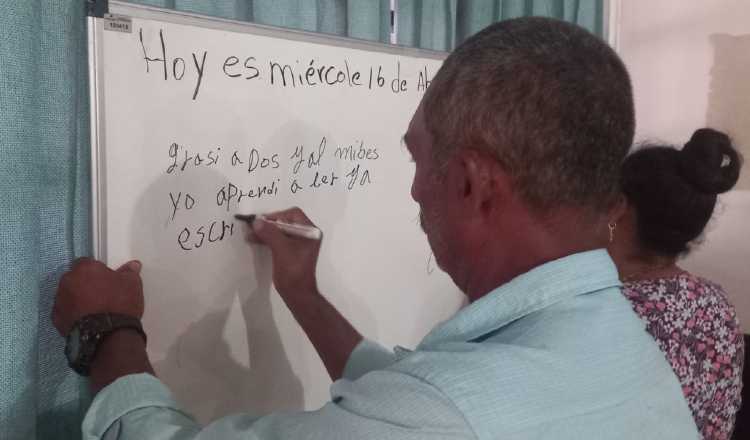 Hoy es miércole 16 de Ab
grasi a Dos y al mibes
yo aprendi a ler ya
escri